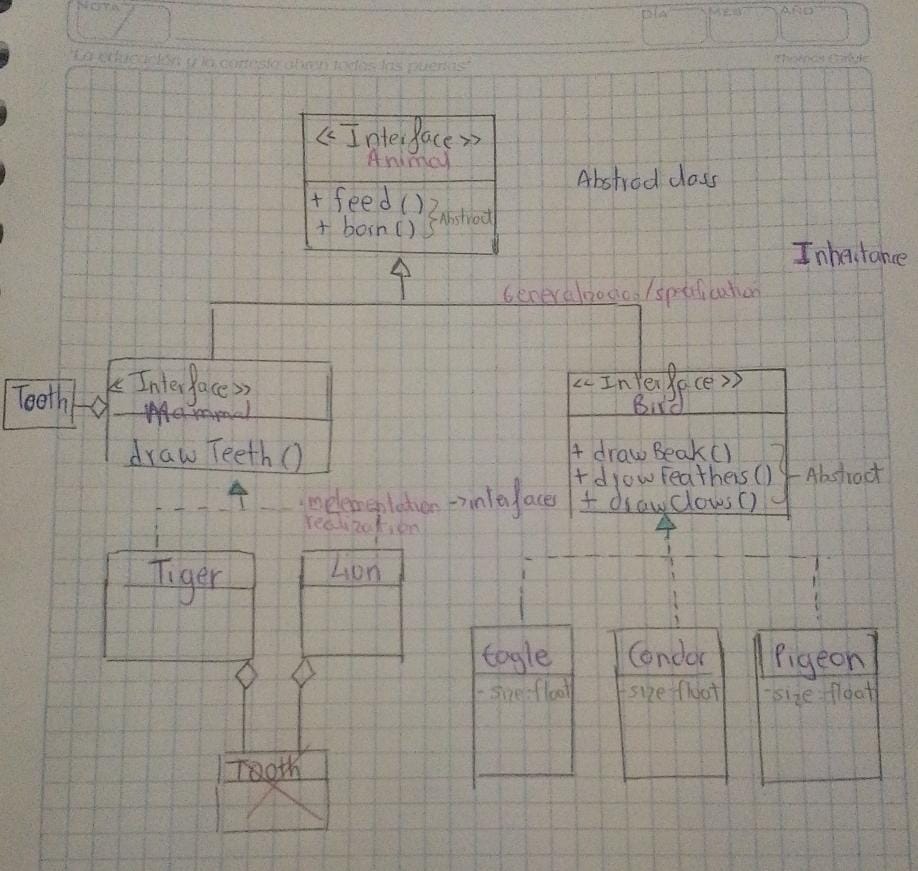 NOTA
DIA
MES
AÑO
"La educación y la cortesía abren todas las puertas"
Thomas Carlyle
<< Interface >>
Animal
+ feed ()
+ born ()
Abstract
Abstract class
Inheritance
Tooth
<< Interface >>
Mammal
draw Teeth ()
<< Interface >>
Bird
+ draw Beak ()
+ draw Feathers ()
+ draw Claws ()
Abstract
→ interfaces
realization
Tiger
Lion
Eagle
- size: float
Condor
- size: float
Pigeon
- size: float
Tooth